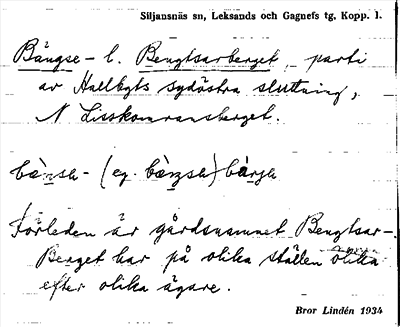 Siljansnäs sn, Leksands och Gagnefs tg, Kopp. l.
Bängse- l. Bengtsarberget, parti
av Hallbyts sydöstra sluttning,
N Lisskomransberget.
bànsa- (eg. bàŋsa) bàrja
Förleden är gårdsnamnet Bengtsar-.
Berget har på olika ställen olika
efter olika ägare.
Bror Lindén 1934